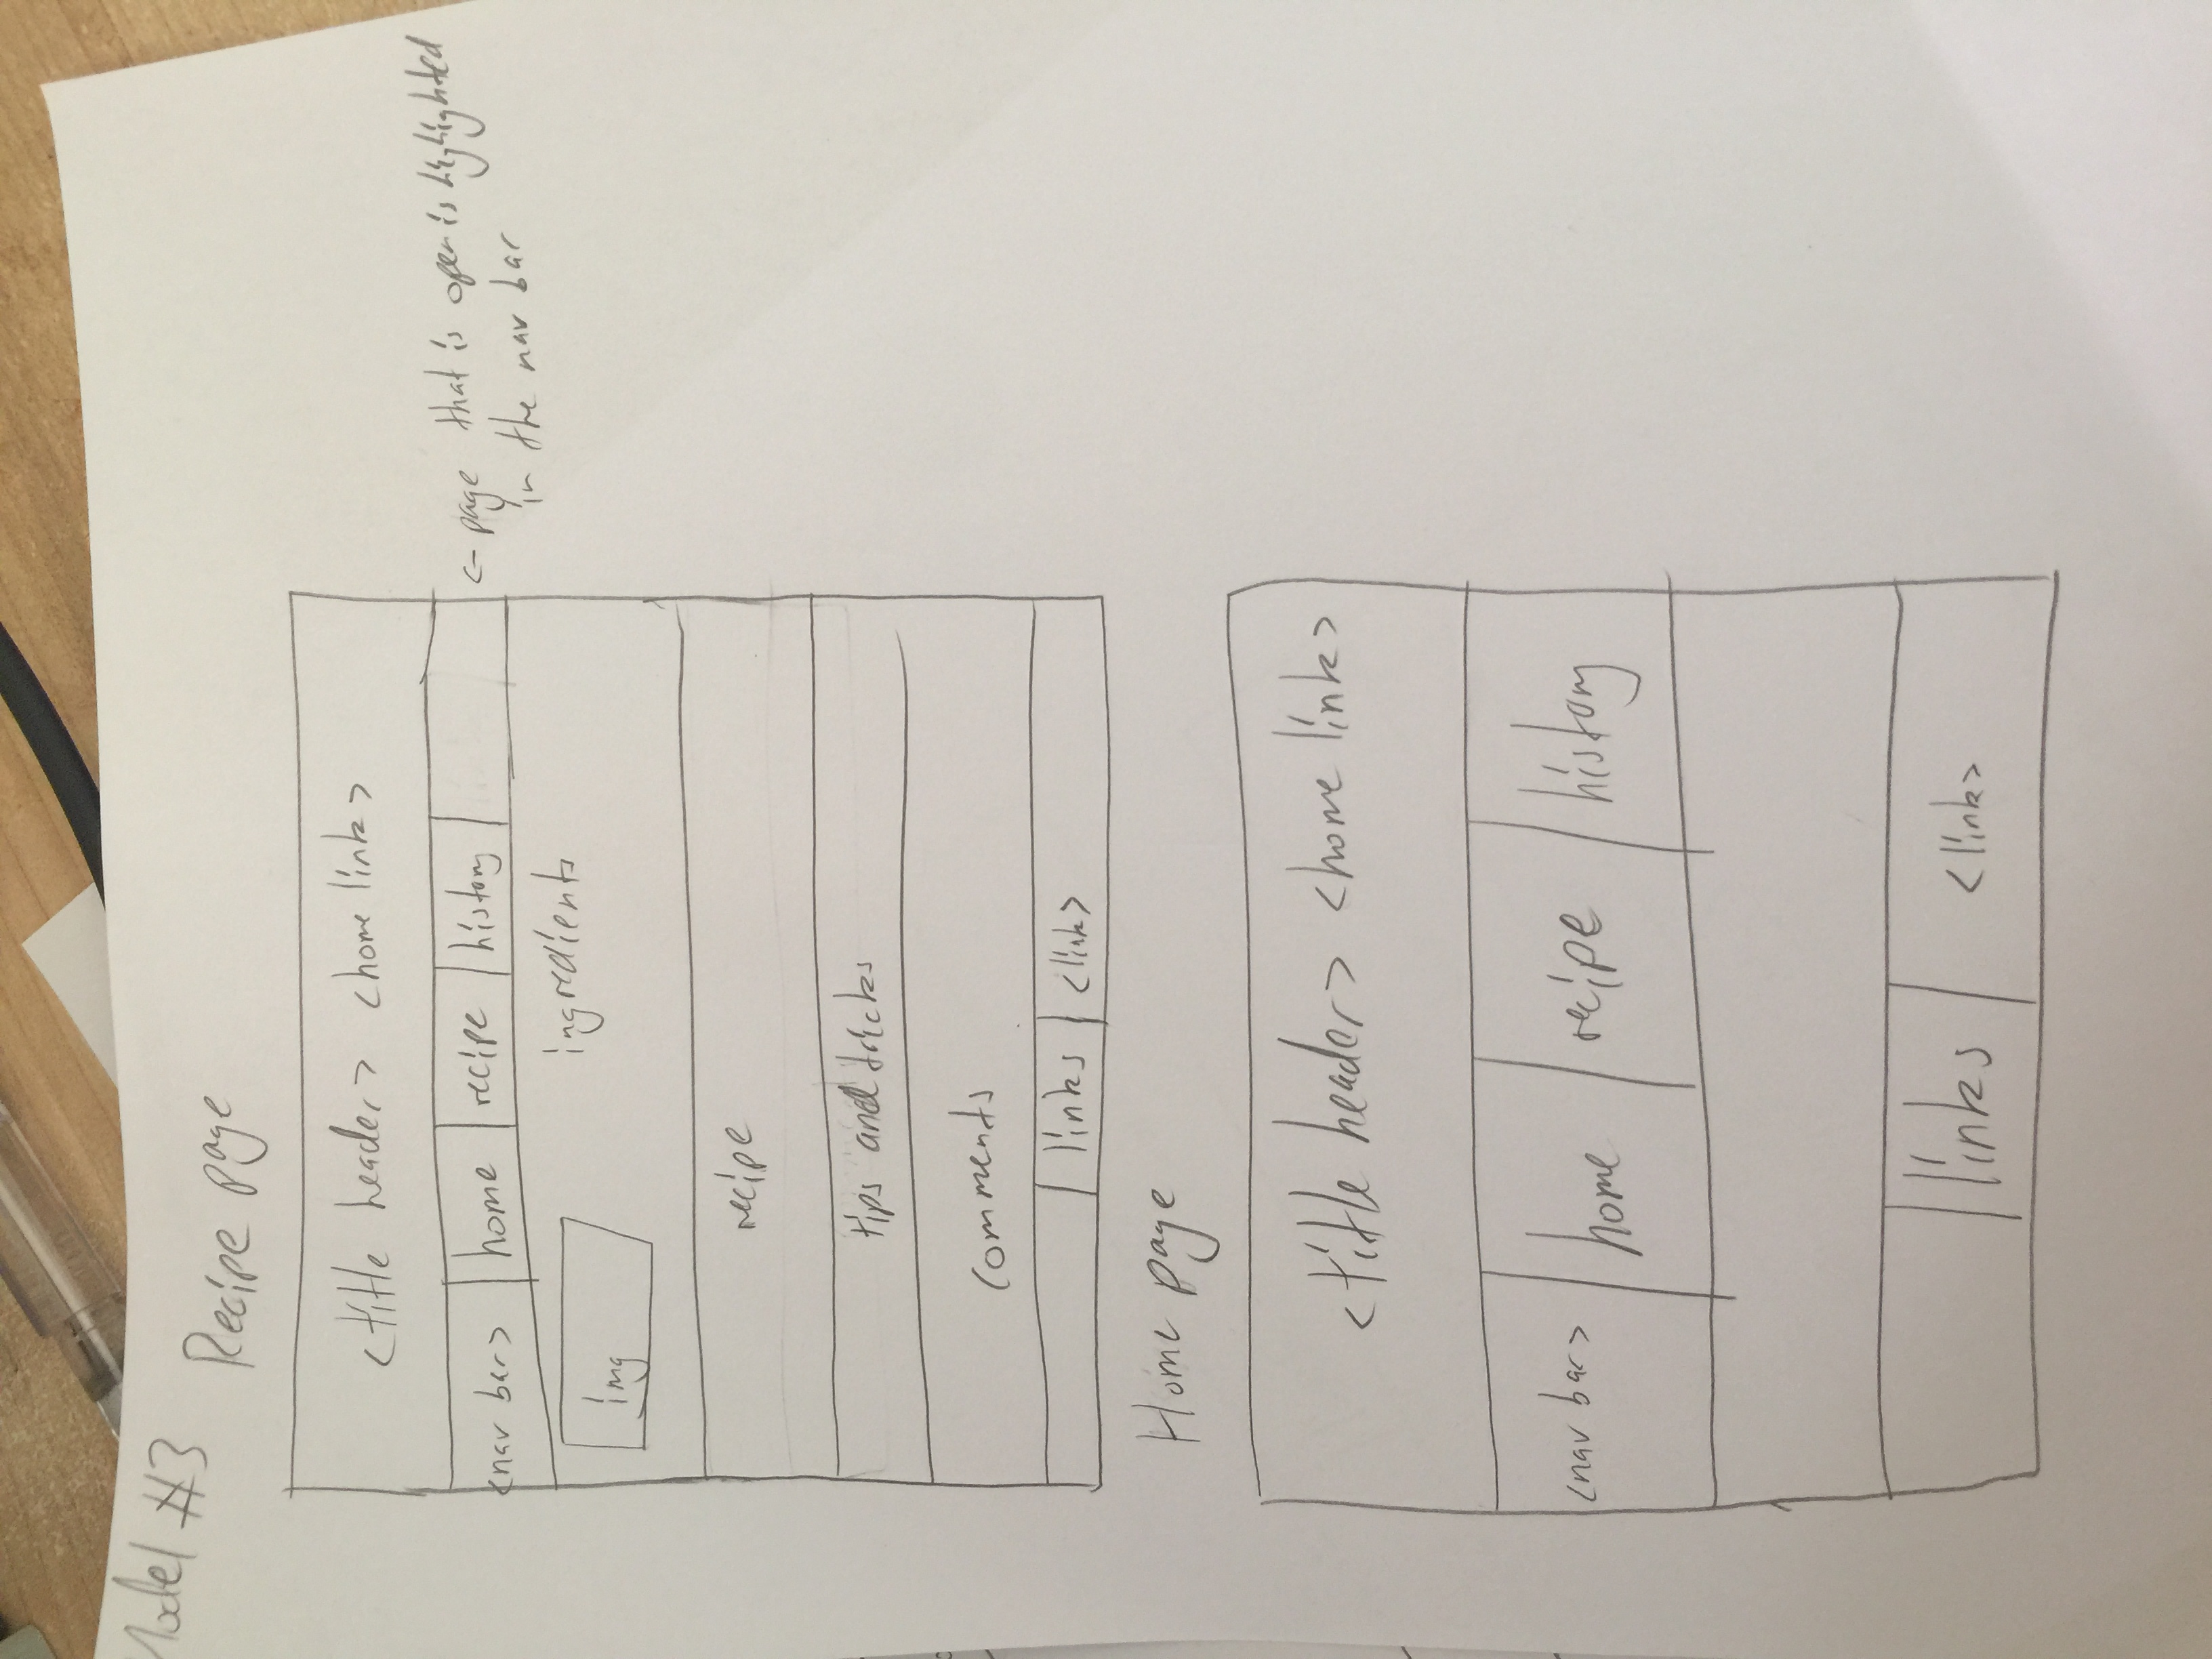 Model #3
Recipe page
<title header> <home link>
<nav bar> home recipe history
<- page that is open is highlighted
in the nav bar
img
ingredients
recipe
tips and tricks
comments
links <link>
Home page
<title header> <home link>
<nav bar> home recipe history
links <link>